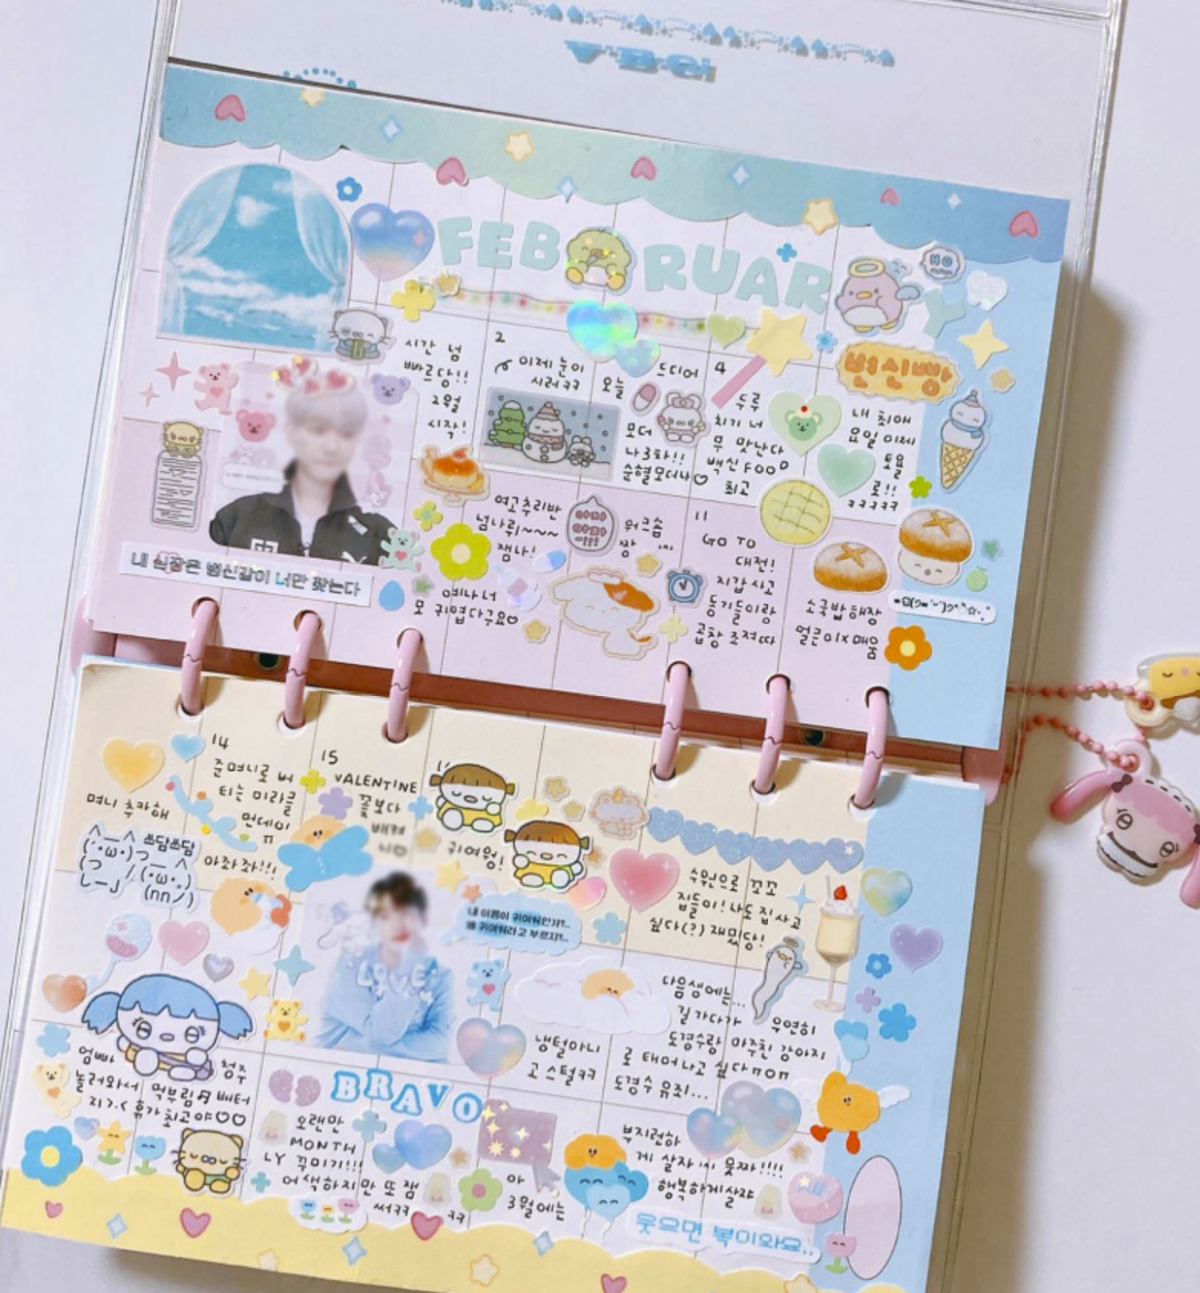 FEBRUARY
HO
시간 넘
빠르당!!
2월
시작!
2
이제 눈이
시러ㅋㅋ
오늘
드디어
모더
나 3차!!
순혈모더나♡
4
두루
치기 너
무 맛난다
백신 FOOD
최고
내 최애
요일 이제
토요
로!!
ㅋㅋㅋㅋㅋ
여고추리반
넘나뤼~~~
잼나!
예나 너
모 귀엽다구요♡
워크숍
짱
11
GO TO
대전!
지갑 사고
동기들이랑
곱창 조져따
소국밥 해장
얼큰이x매움
내 심장은 병신같이 너만 찾는다
며니 추카해
쓰담쓰담
14
준며니로 버
티는 미라클
먼데이
ㅠ
아좌좌!!!
15
VALENTINE
꽃보다
귀여워!
내 이름이 귀여워인가?..
왜 귀여워라고 부르지?..
LOVE
수원으로 꼬꼬
집들이! 나도 집 사고
싶다(?) 재밌당!
엄빠 청주
놀러와서 먹부림 배터
지기.< 휴가 최고야♡♡
냉털아니
고 스털ㅋㅋ
다음생에는...
길 가다가 우연히
도경수랑 마주친 강아지
로 태어나고 싶다ㅠㅠ
도경수 유죄...
BRAVO
오랜만
MONTH
LY 꾸미기!!!
어색하지만 또 잼
써ㅋㅋ ㅋㅋ
아
3월에는
부지런하
게 살자 씨 읏짜!!!!
행복하게살쟈
웃으면 복이와요..